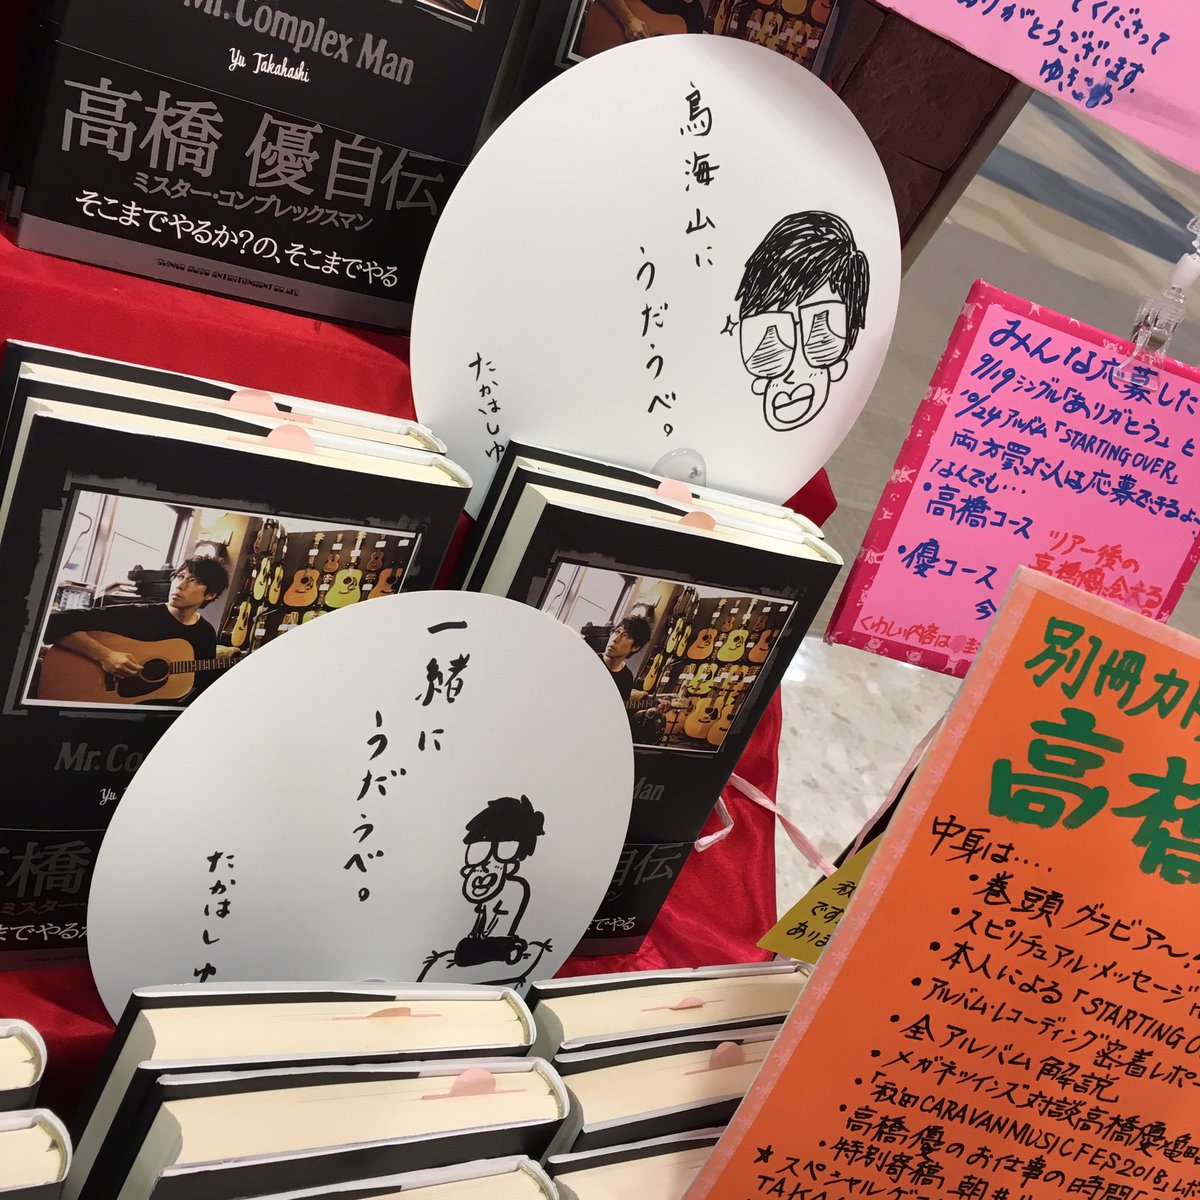 Mr. Complex Man
Yu Takahashi
高橋 優自伝
ミスター・コンプレックスマン
そこまでやるか?の、そこまでやる
鳥海山に
うだうべ。
たかはしゆ
てくださって
ありがとうございます。
みんな応募した
9/19 シングル「ありがとう」と
10/24 アルバム「STARTING OVER」
両方買った人は応募できるよ
なんでも…
・高橋コース
ツアー後の
高橋優に会える
・優コース
今
くわしい内容は
一緒に
うだうべ。
たかはしゆ
Yu
Man
自伝
ミスター・
までやる
別冊カド
高橋
中身は‥‥
・巻頭グラビア〜
・スピリチュアル・メッセージ
・本人による「STARTING O
・アルバム・レコーディング密着レポ
・全アルバム解説
・メガネツインズ対談高橋優
・「秋田CARAVAN MUSIC FES 2018」レポ
・高橋優のお仕事の時間
・特別寄稿 朝
★スペシャル
TAKA